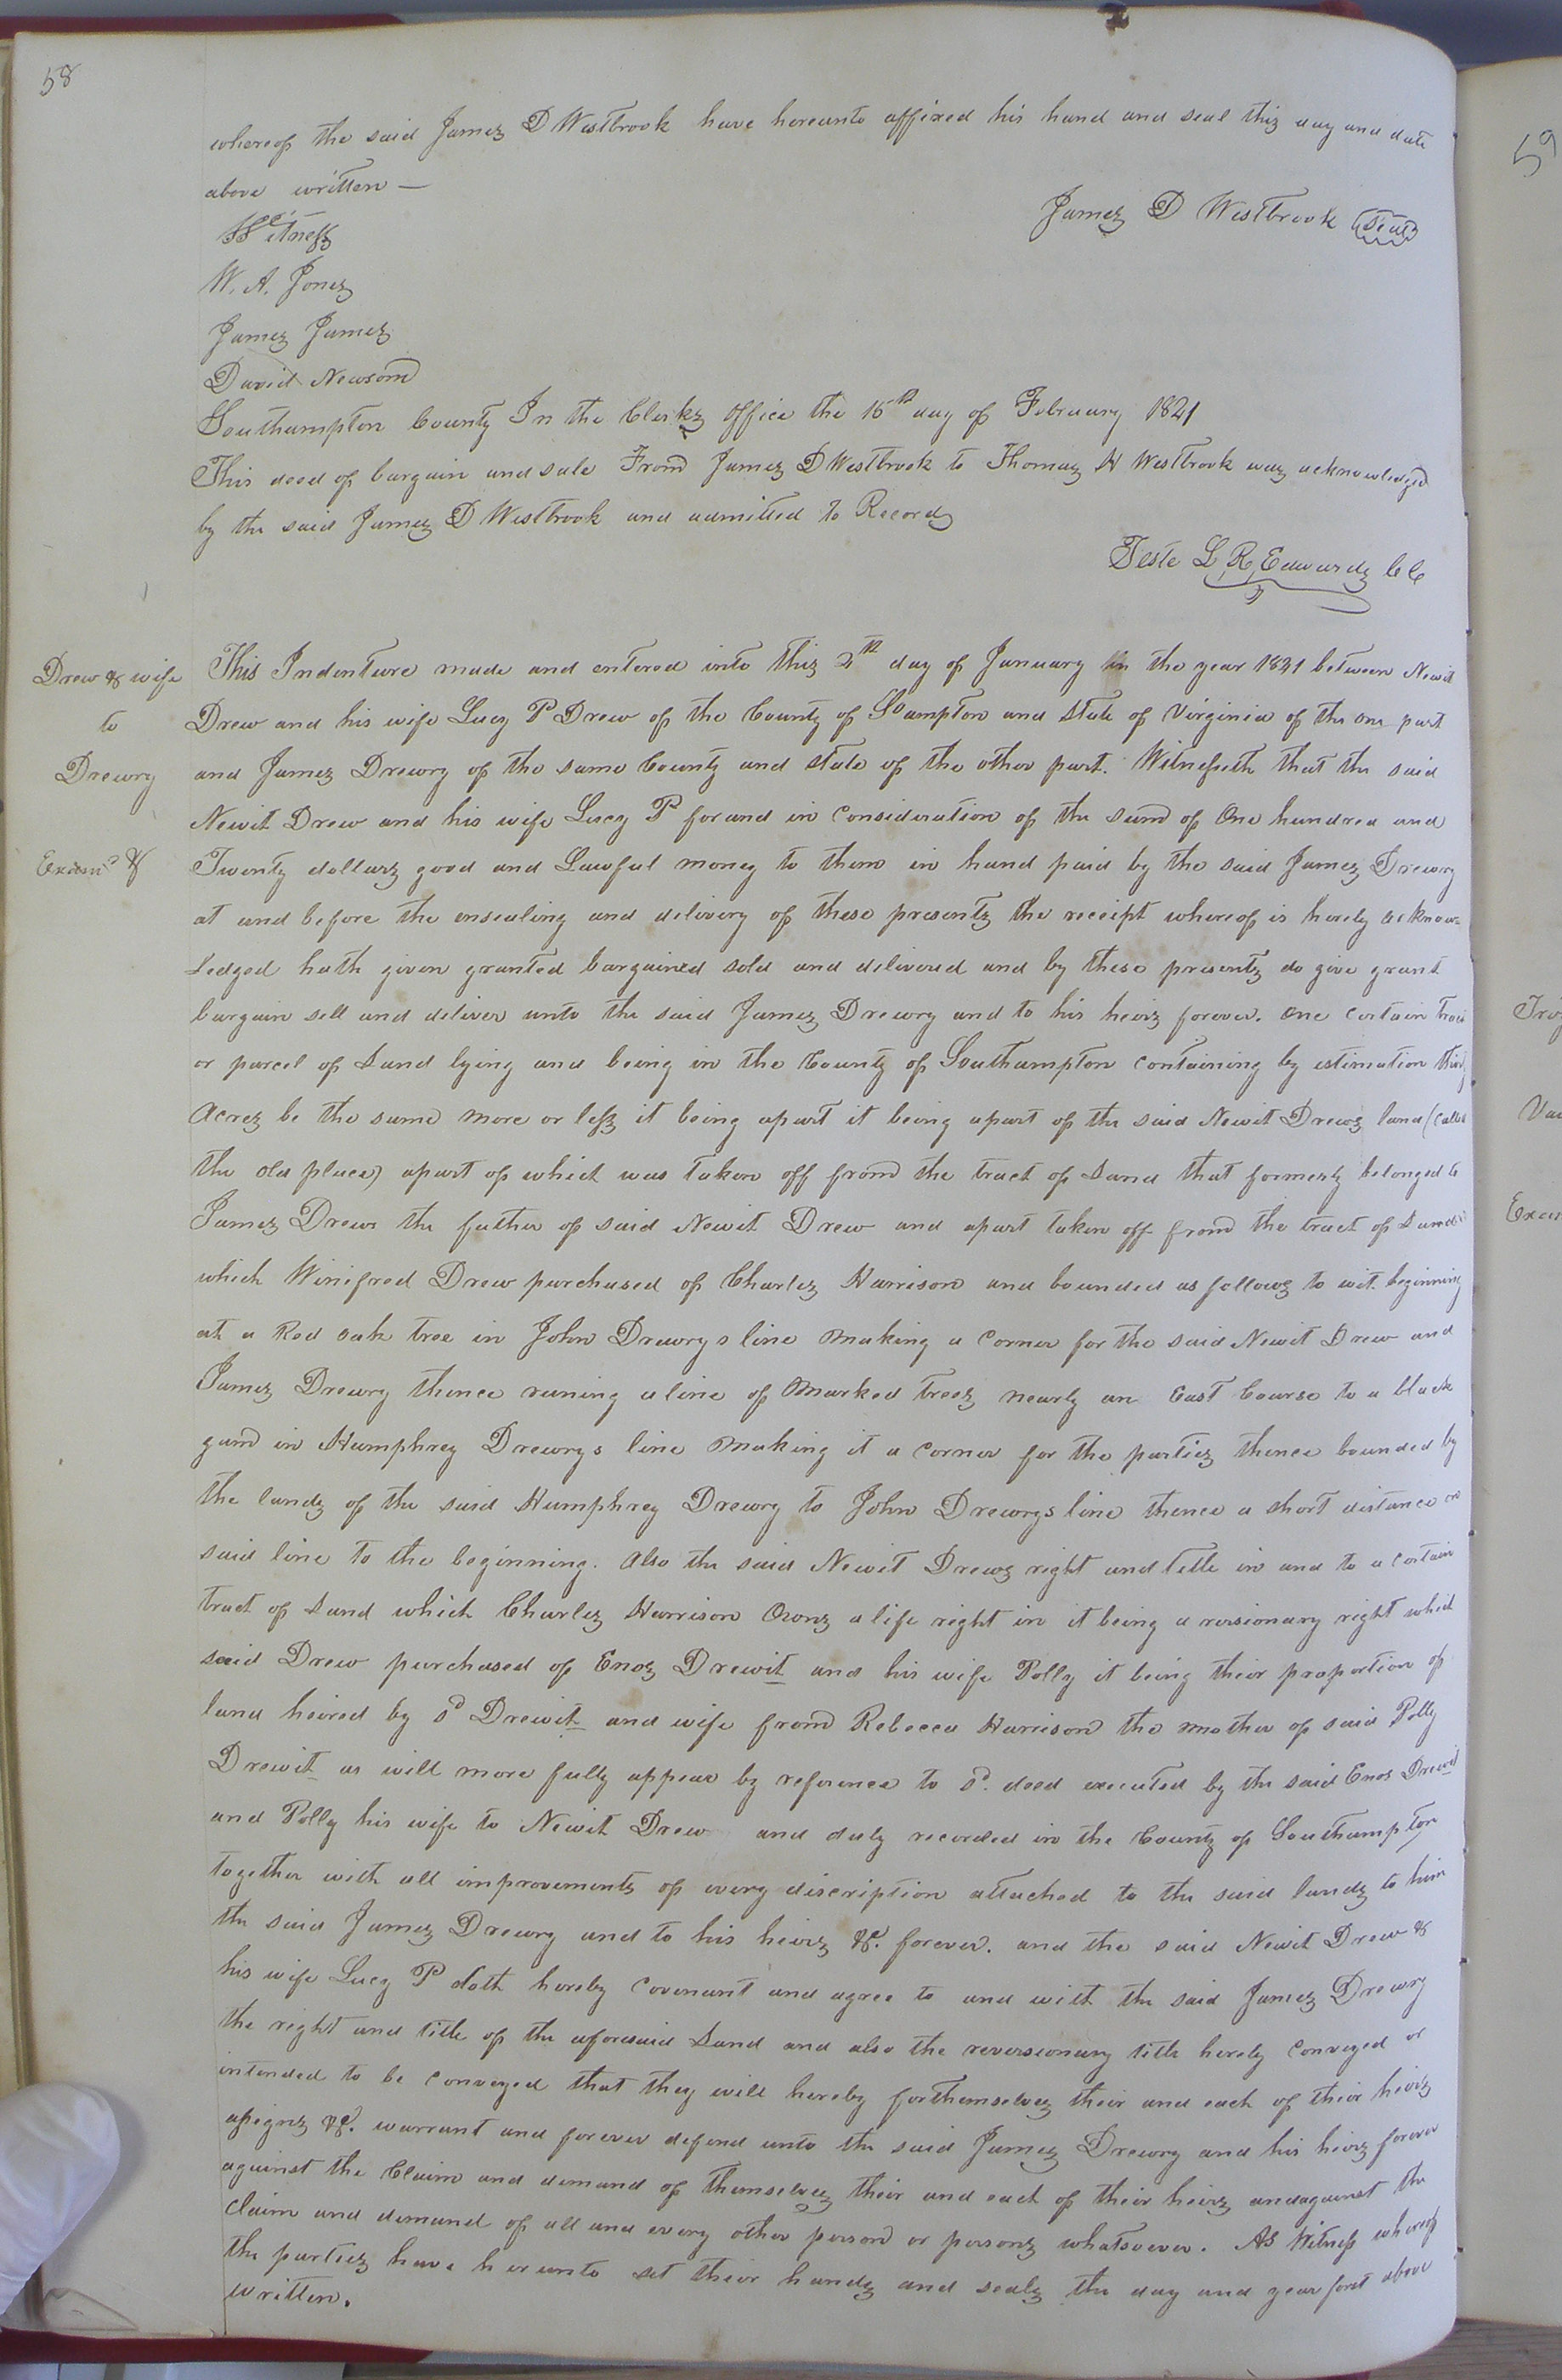 58
whereof the said James D Westbrook have hereunto affixed his hand and seal this day and date
above written —
James D Westbrook (Seal)
Witness
W. A. Jones
James James
David Newsom
Southampton County In the Clerks office the 16th day of February 1821
This deed of bargain and sale From James D Westbrook to Thomas H Westbrook was acknowledged
by the said James D Westbrook and admitted to Record
Teste L, R, Edwards CC
Drew & wife
to
Drewry
Examd &
This Indenture made and entered into this 2th day of January in the year 1821 between Newit
Drew and his wife Lucy P Drew of the County of Soampton and state of Virginia of the one part
and James Drewry of the same County and state of the other part. Witnesseth that the said
Newit Drew and his wife Lucy P for and in Consideration of the sum of One hundred and
Twenty dollars good and Lawful money to them in hand paid by the said James Drewry
at and before the ensealing and delivery of these presents the receipt whereof is hereby acknow=
ledged hath given granted bargained sold and delivered and by these presents do give grant
bargain sell and deliver unto the said James Drewry and to his heirs forever. One certain tract
or parcel of Land lying and being in the County of Southampton containing by estimation thirty
Acres be the same more or less it being apart it being apart of the said Newit Drews land (called
the old place) apart of which was taken off from the tract of Land that formerly belonged to
James Drew the father of said Newit Drew and apart taken off from the tract of Land
which Winifred Drew purchased of Charles Harrison and bounded as follows to wit. beginning
at a Red oak tree in John Drewrys line making a corner for the said Newit Drew and
James Drewry thence runing a line of marked trees nearly an East Course to a black
gum in Humphrey Drewrys line making it a corner for the parties thence bounded by
the lands of the said Humphrey Drewry to John Drewrys line thence a short distance on
said line to the beginning. Also the said Newit Drews right and title in and to a certain
tract of Land which Charles Harrison Owns a life right in it being a rvisionary right which
said Drew purchased of Enos Drewit and his wife Polly it being their proportion of
land heired by sd Drewit and wife from Rebecca Harrison the mother of said Polly
Drewit as will more fully appear by reference to sd. deed executed by the said Enos Drewit
and Polly his wife to Newit Drew and duly recorded in the County of Southampton
together with all improvements of every discription attached to the said lands to him
the said James Drewry and to his heirs &c. forever. and the said Newit Drew &
his wife Lucy P doth hereby Covenant and agree to and with the said James Drewry
the right and title of the aforesaid Land and also the reversionary title hereby Conveyed or
intended to be Conveyed that they will hereby for themselves their and each of their heirs
assigns &c. warrant and forever defend unto the said James Drewry and his heirs forever
against the Claim and demand of themselves their and each of their heirs and against the
Claim and demand of all and every other person or persons whatsoever. As Witness whereof
the parties have hereunto set their hands and seals the day and year first above
written.
59